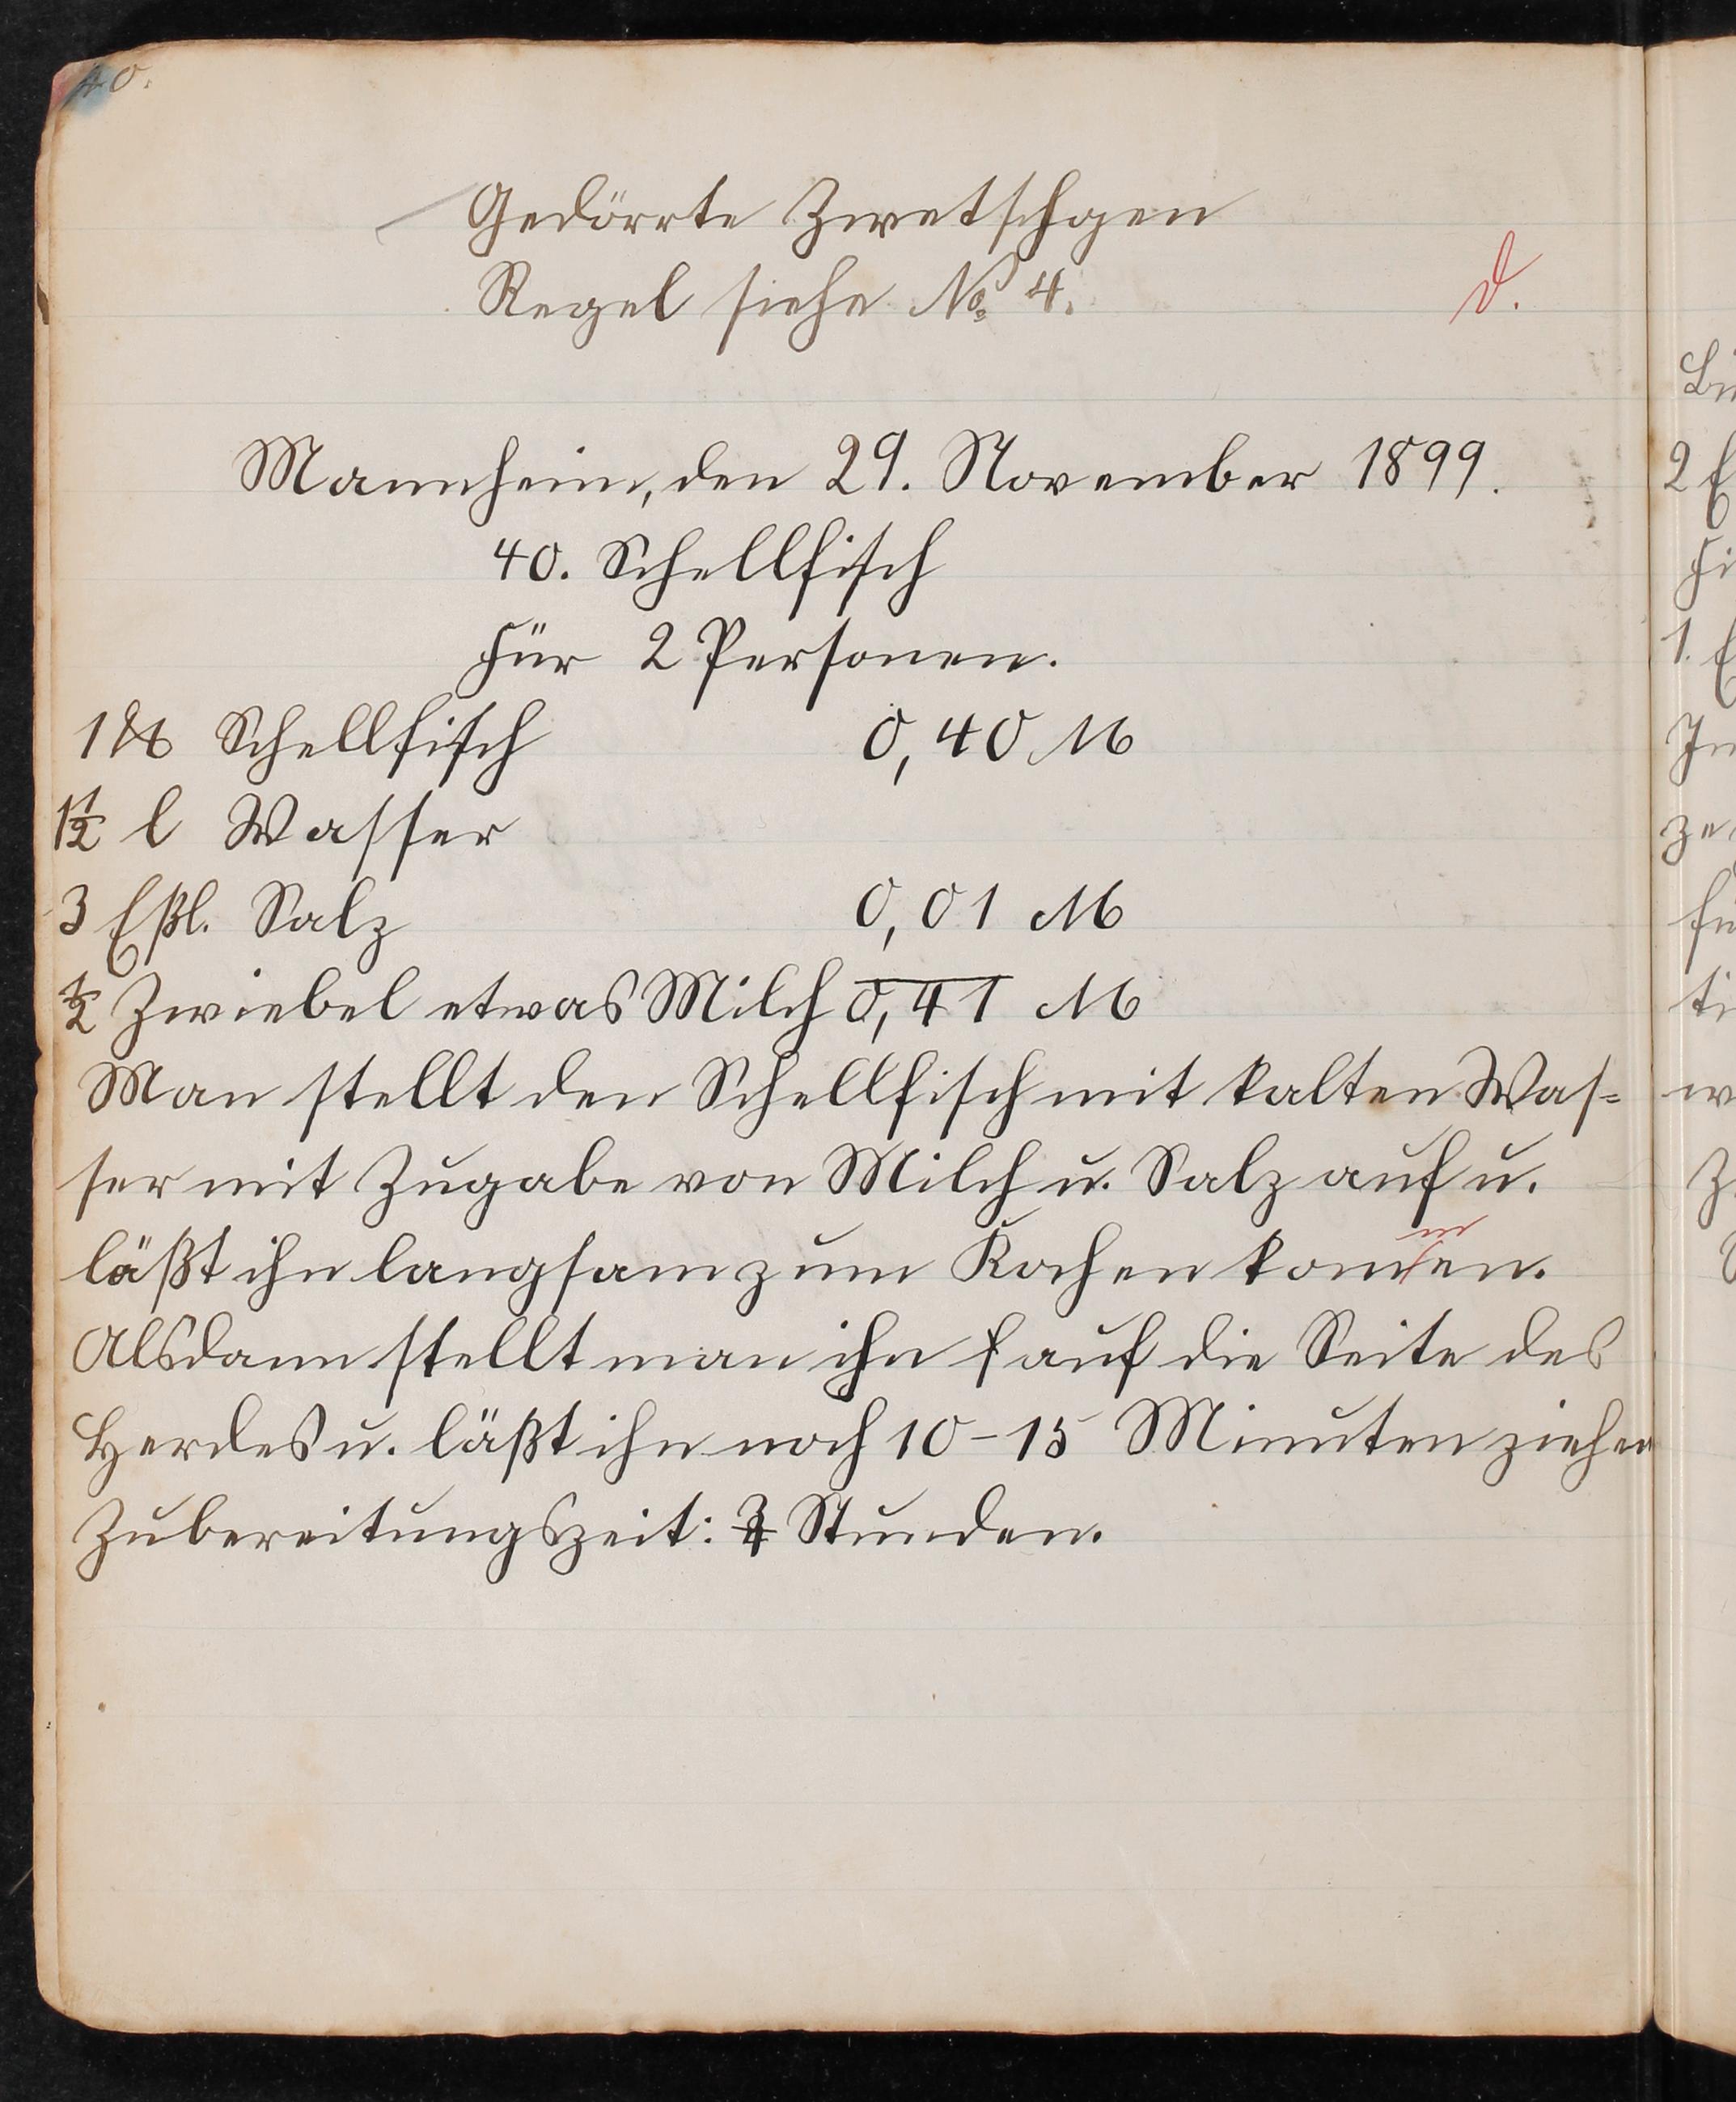 40.
Gedörrte Zwetschgen
Regel siehe No. 4.
d.
Mannheim, den 29. November 1899.
40. Schellfisch
Für 2 Personen.
1 ℔ Schellfisch 0,40 M
1½ l Wasser
3 Eßl. Salz 0,01 M
½ Zwiebel etwas Milch 0,41 M
Man stellt den Schellfisch mit kalten Was=
ser mit Zugabe von Milch u. Salz auf u.
läßt ihn langsam zum Kochen kommen.
Alsdann stellt man ihn f auf die Seite des
Herdes u. läßt ihn noch 10-15 Minuten ziehen
Zubereitungszeit: ¾ Stunden.